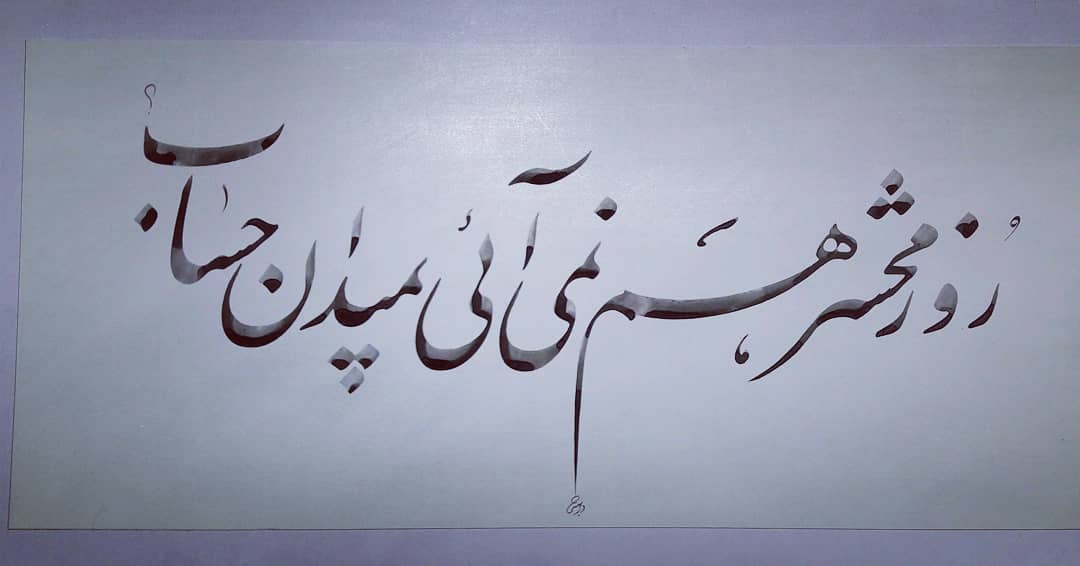 روز محشر هم نمی آئی بمیدان حساب